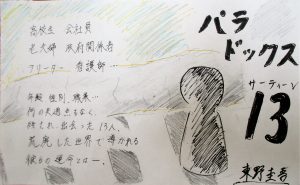 高校生 会社員
老夫婦 政府関係者
フリーター 看護師…
年齢 性別 職業…
何の共通点もなく、
残され、出会った13人。
荒廃した世界で導かれる
彼らの運命とは―。
パラ
ドックス
サーティーン
13
東野圭吾